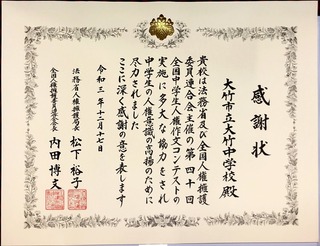 感謝状
大竹市立大竹中学校 殿
貴校は法務省及び全国人権擁護
委員連合会主催の第四十回
全国中学生人権作文コンテストの
実施に多大な協力をされ
中学生の人権意識の高揚のために
尽力されました
ここに深く感謝の意を表します
令和三年十二月十七日
法務省人権擁護局長 松下裕子
全国人権擁護委員連合会会長 内田博文